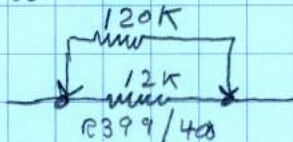 120K
12K
R399/400